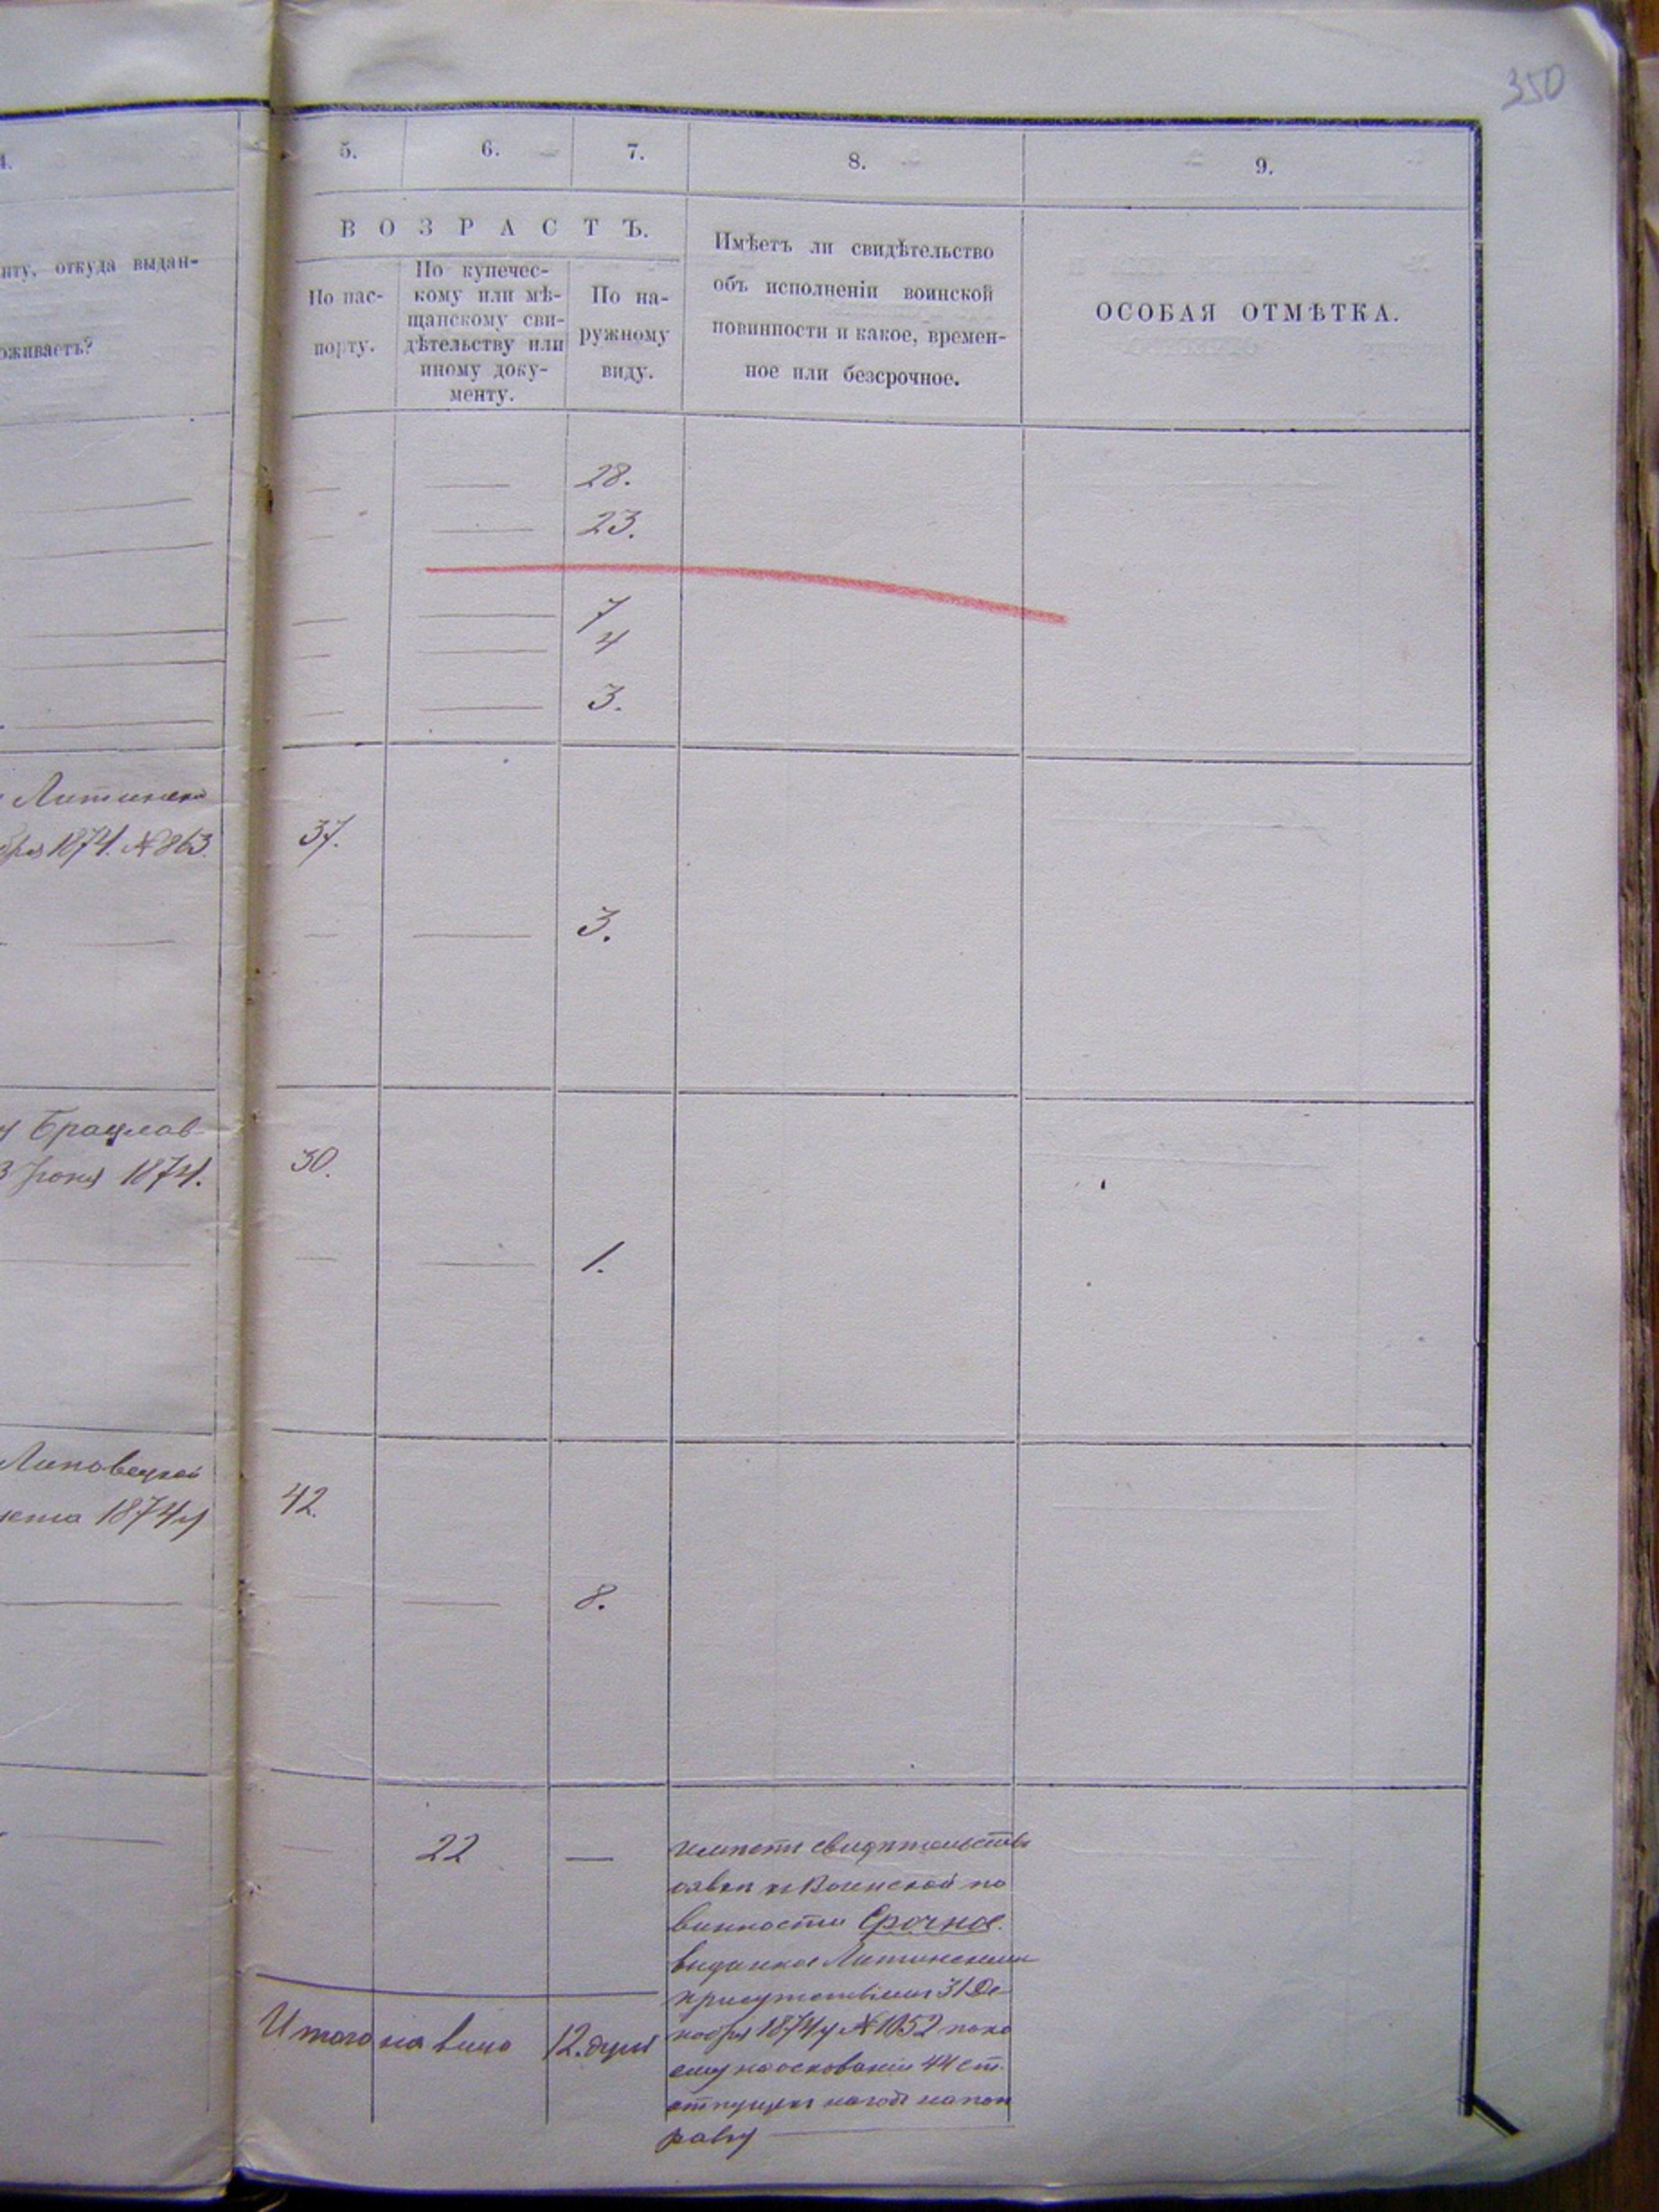 350
5.
6.
7.
8.
9.
ВОЗРАСТЪ.
нту, откуда выдан-
оживаетъ?
По пас-
порту.
По купечес-
кому или мѣ-
щанскому сви-
дѣтельству или
иному доку-
менту.
По на-
ружному
виду.
Имѣетъ ли свидѣтельство
объ исполненіи воинской
повинности и какое, времен-
ное или безсрочное.
ОСОБАЯ ОТМѢТКА.
28.
23.
7
4
3.
Литинск
бря 1874. №863.
37.
3.
Брацлав
3 Іюня 1874.
30.
1.
Липовецкой
1874 г
42.
8.
22
имѣетъ свидѣтельство
явкѣ къ Воинской по
винности Срочное.
выданное Литинскимъ
присутствіемъ 31 Де
кабря 1874 г № 1052 пока
ему на основаніи 44 ст.
отпущенъ на годъ на поп
равку
Итого на лицо 12. душ